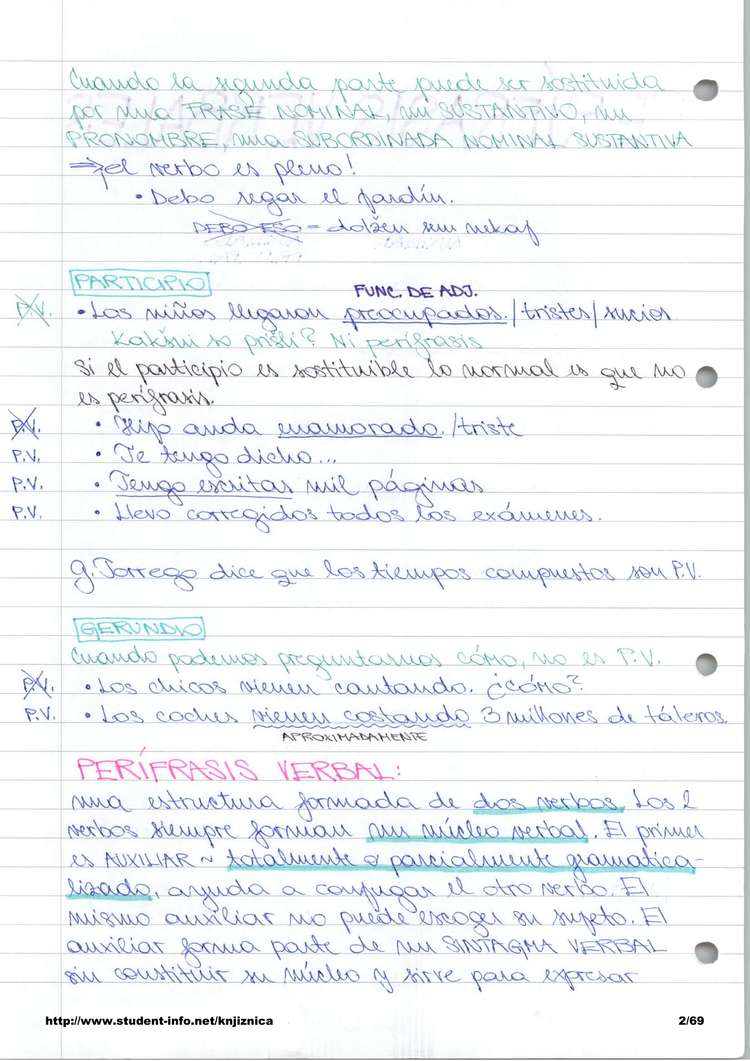 Cuando la segunda parte puede ser sostituida
por una FRASE NOMINAL, un SUSTANTIVO, un
PRONOMBRE, una SUBORDINADA NOMINAL SUSTANTIVA
⇒ el verbo es pleno!
• Debo regar el jardín.
DEBO ESO = dolžen sem nekaj
PARTICIPIO
FUNC. DE ADJ.
P.V. • Los niños llegaron preocupados./tristes/sucios
Kakšni so prišli? Ni perífrasis
Si el participio es sostituible lo normal es que no
es perífrasis.
P.V. • Hijo anda enamorado./triste
P.V. • Te tengo dicho...
P.V. • Tengo escritas mil páginas
P.V. • Llevo corregidos todos los exámenes.
G. Torrego dice que los tiempos compuestos son P.V.
GERUNDIO
Cuando podemos preguntarnos cómo, no es P.V.
P.V. • Los chicos vienen cantando. ¿CÓMO?
P.V. • Los coches vienen costando 3 millones de táleros.
APROXIMADAMENTE
PERÍFRASIS VERBAL:
una estructura formada de dos verbos. Los 2
verbos siempre forman un núcleo verbal. El primer
es AUXILIAR ~ totalmente o parcialmente gramatica-
lizado, ayuda a conjugar el otro verbo. El
mismo auxiliar no puede escoger su sujeto. El
auxiliar forma parte de un SINTAGMA VERBAL
sin constituir su núcleo y sirve para expresar
http://www.student-info.net/knjiznica 2/69